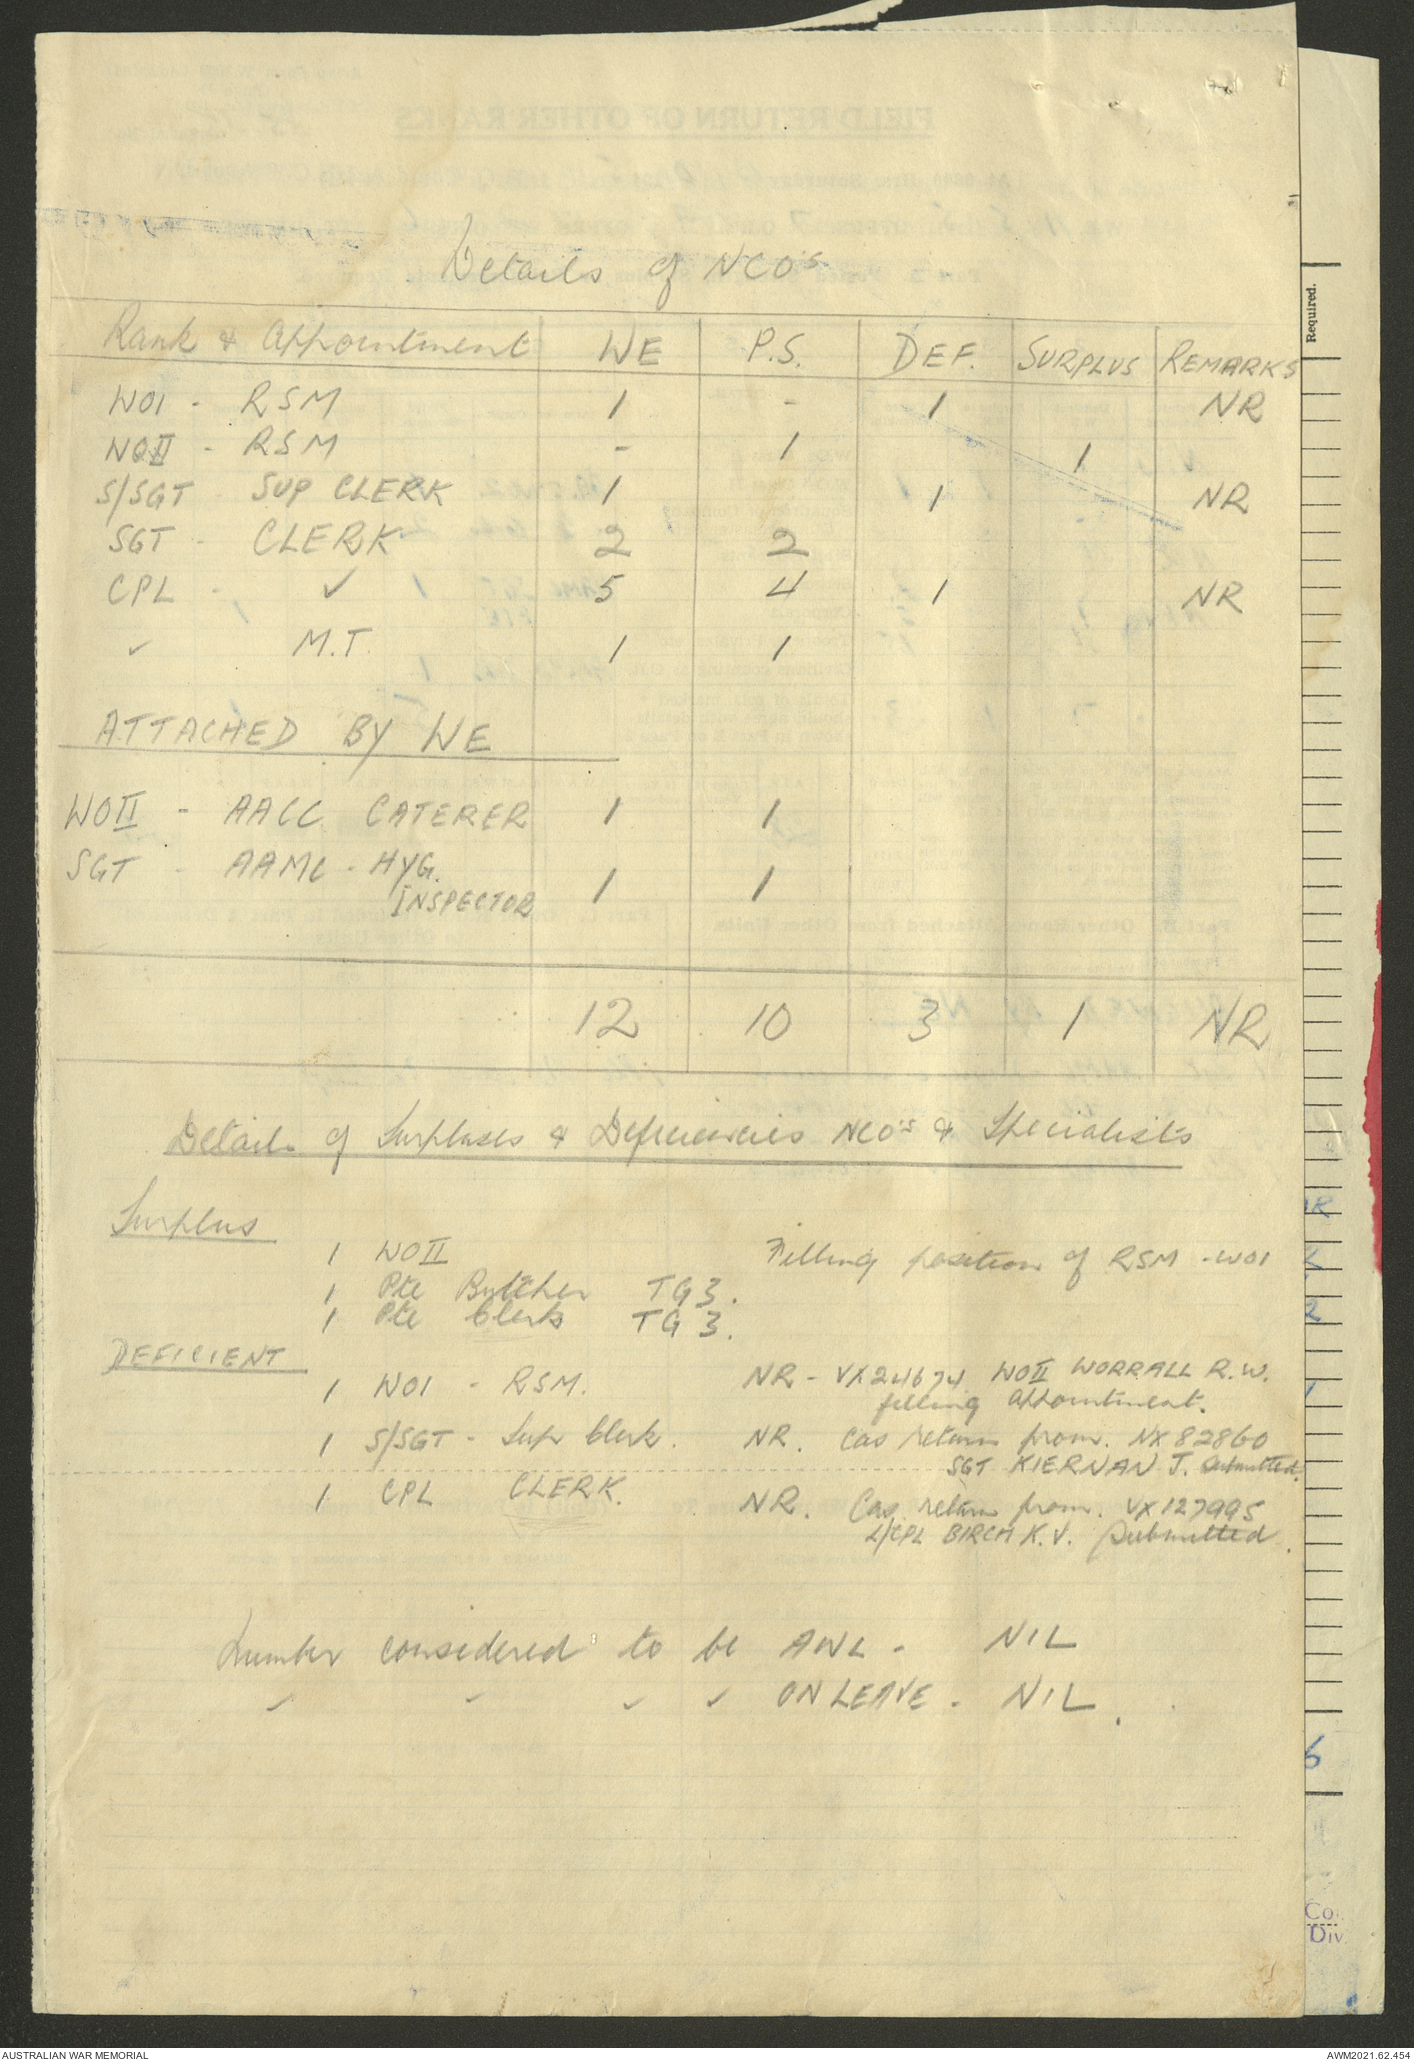 Details of NCO's
Rank & Appointment WE P.S. DEF. SURPLUS REMARKS
WO1 - RSM 1 - 1 NR
WOII - RSM - 1 1
S/SGT - SUP CLERK 1 1 NR
SGT - CLERK 2 2
CPL - ✓ 5 4 1 NR
✓ M.T. 1 1
ATTACHED BY WE
WOII - AACC CATERER 1 1
SGT - AAMC - HYG.
INSPECTOR 1 1
12 10 3 1 NR
Details of Surpluses & Deficiencies NCO's & Specialists
Surplus
1 WOII Filling position of RSM - WO1
1 Pte Butcher TG3.
1 Pte Clerk TG3.
DEFICIENT
1 WO1 - RSM. NR - VX24674 WOII WORRALL R.W.
filling appointment.
1 S/SGT - Sup Clerk. NR. Cas return from. NX82860
SGT KIERNAN J. Submitted.
1 CPL CLERK. NR. Cas return from. VX127995
L/CPL BIRCH K.V. Submitted.
Number considered to be AWL - NIL
✓ ✓ ✓ ✓ ON LEAVE - NIL.
Required.
2
1
6
Div
AUSTRALIAN WAR MEMORIAL AWM2021.62.454